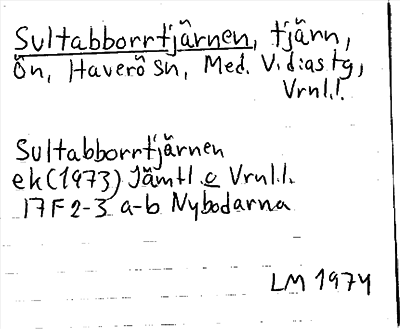 Sultabborrtjärnen, tjärn,
Ön, Haverö sn, Med. V. diastg,
Vrnl.l.
Sultabborrtjärnen
ek (1973) Jämtl. c Vrnl.l.
17F 2-3 a-b Nybodarna
LM 1974